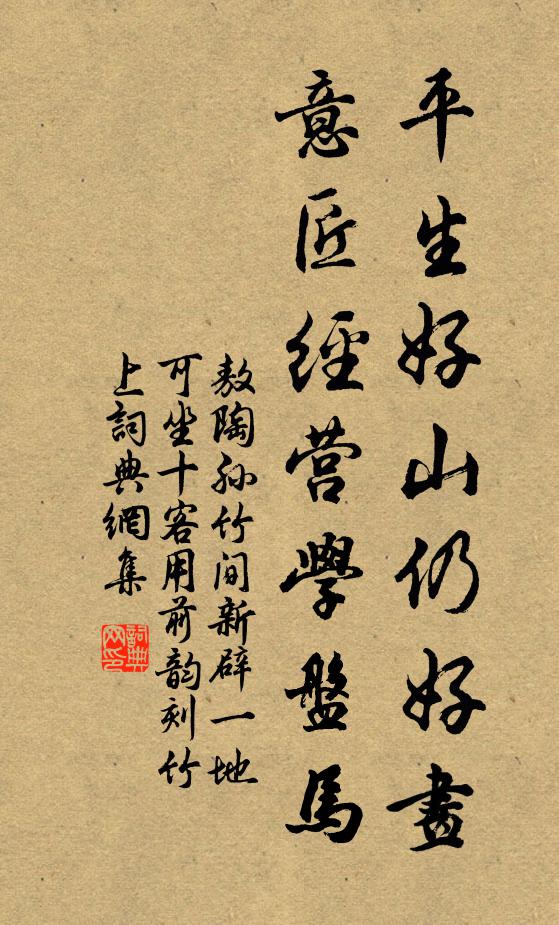 平生好山仍好畫
意匠經营學盤馬
敖陶孫竹间新辟一地
可坐十客用前韵刻竹
上詞典網集
詞典网印